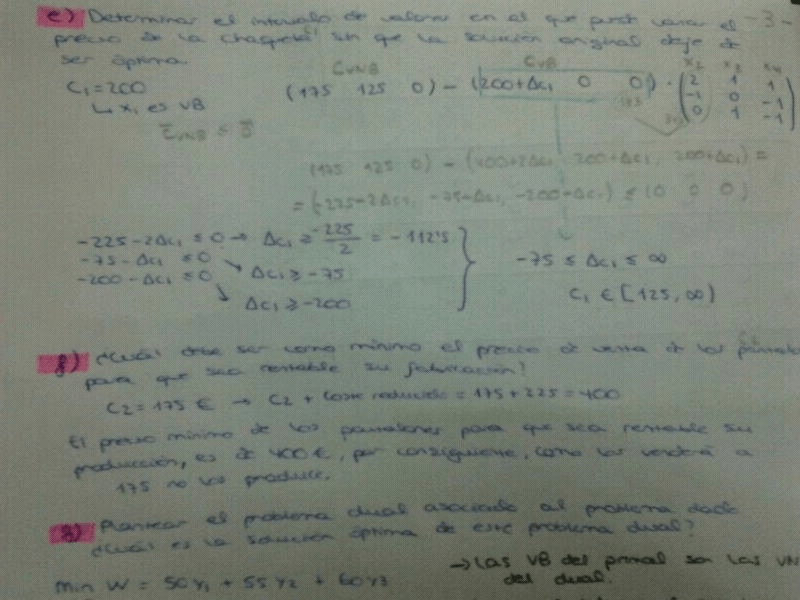 e) Determinar el intervalo de valores en el que puede variar el -3-
precio de la chaqueta sin que la solución original deje de
ser óptima.
C₁=200
↳ x₁ es VB
C̄VNB ≤ 0̄
CVNB CVB x₂ x₃ x₄
(175 125 0) - (200+Δc₁ 0 0) · (2 1 1
-1 0 -1
0 1 -1)
(175 125 0) - (400+2Δc₁, 200+Δc₁, 200+Δc₁) =
= (-225-2Δc₁, -75-Δc₁, -200-Δc₁) ≤ (0 0 0)
-225-2Δc₁ ≤ 0 → Δc₁ ≥ -225/2 = -112'5
-75-Δc₁ ≤ 0 ↘ Δc₁ ≥ -75
-200-Δc₁ ≤ 0 ↘ Δc₁ ≥ -200
-75 ≤ Δc₁ ≤ ∞
C₁ ∈ [125, ∞)
f) ¿Cuál debe ser como mínimo el precio de venta de los
para que sea rentable su fabricación?
C₂ = 175 € → C₂ + Coste reducido = 175 + 225 = 400
El precio mínimo de los pantalones para que sea rentable su
producción, es de 400 €, por consiguiente, como los venderá a
175 no los produce.
g) Plantear el problema dual asociado al problema dado
¿Cuál es la solución óptima de este problema dual?
→ Las VB del primal son las VN
del dual.
Min W = 50y₁ + 55y₂ + 60y₃